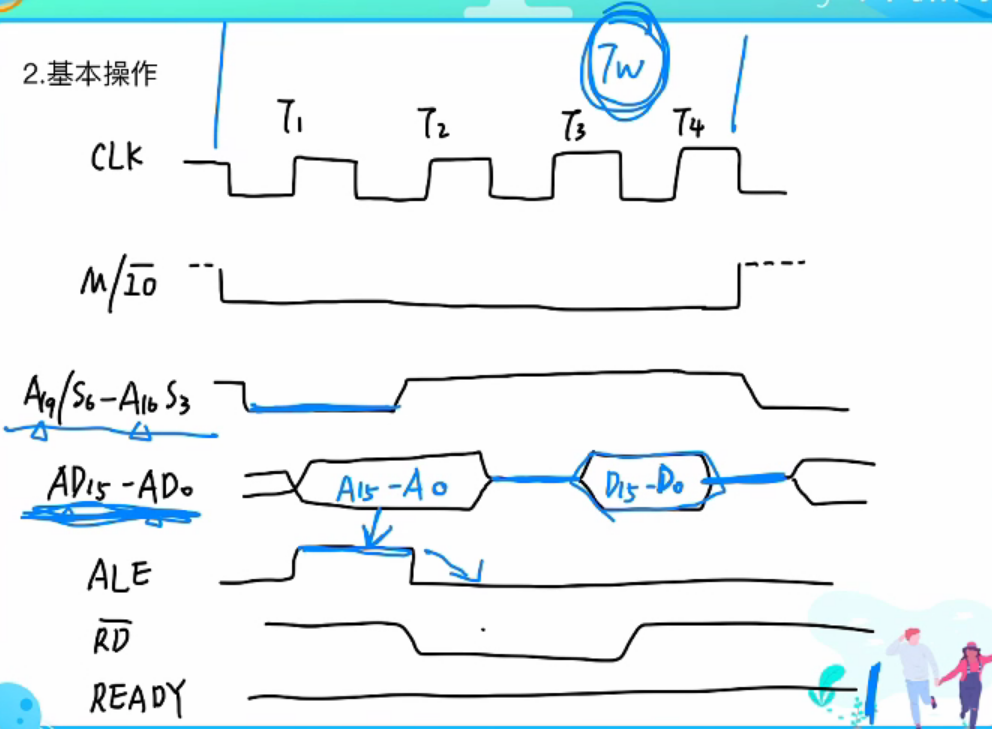 2.基本操作
Tw
T₁ T₂ T₃ T₄
CLK
M/I̅O̅
A₁₉/S₆-A₁₆ S₃
AD₁₅-AD₀
A₁₅-A₀ D₁₅-D₀
ALE
R̅D̅
READY